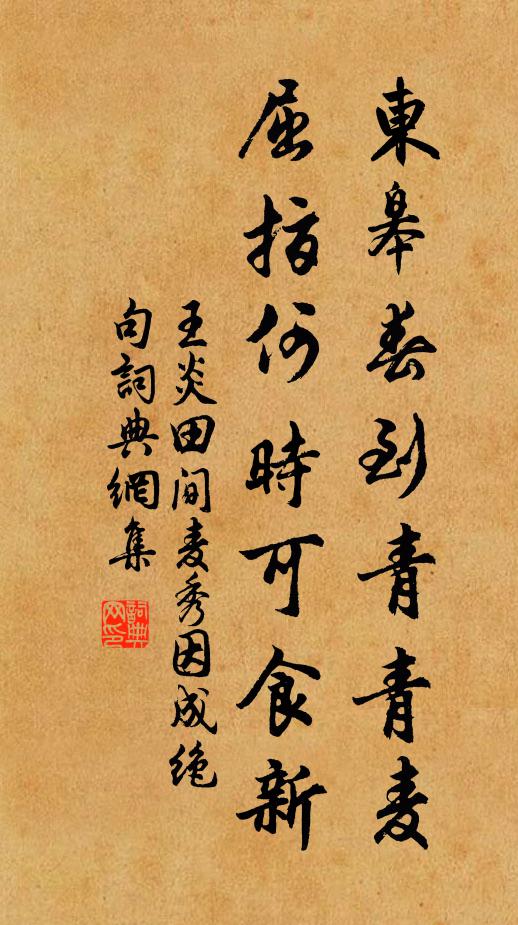 東皋春到青青麦
屈指何時可食新
王炎田间麦秀因成绝
句詞典網集
詞典网印